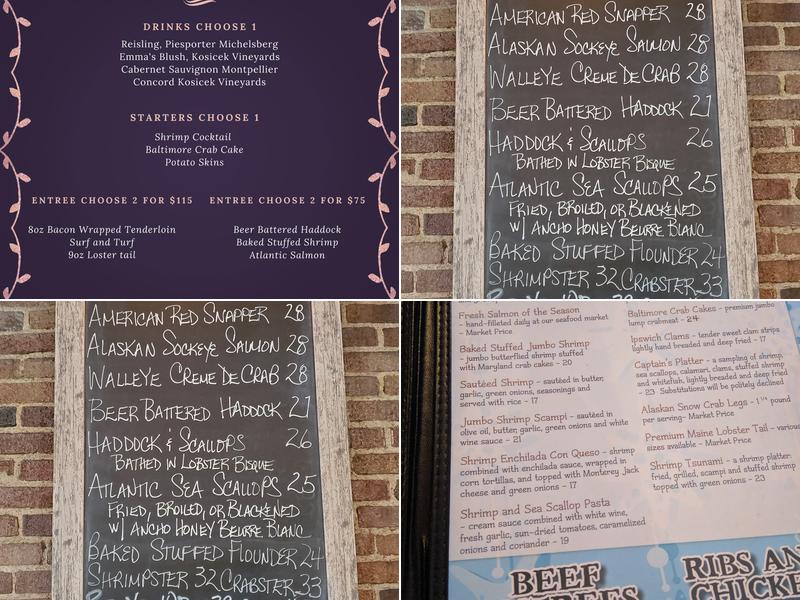 DRINKS CHOOSE 1
Reisling, Piesporter Michelsberg
Emma's Blush, Kosicek Vineyards
Cabernet Sauvignon Montpellier
Concord Kosicek Vineyards
STARTERS CHOOSE 1
Shrimp Cocktail
Baltimore Crab Cake
Potato Skins
ENTREE CHOOSE 2 FOR $115
8oz Bacon Wrapped Tenderloin
Surf and Turf
9oz Loster tail
ENTREE CHOOSE 2 FOR $75
Beer Battered Haddock
Baked Stuffed Shrimp
Atlantic Salmon
AMERICAN RED SNAPPER 28
ALASKAN SOCKEYE SALMON 28
WALLEYE CREME DE CRAB 28
BEER BATTERED HADDOCK 21
HADDOCK & SCALLOPS 26
BATHED IN LOBSTER BISQUE
ATLANTIC SEA SCALLOPS 25
FRIED, BROILED, OR BLACKENED
W/ ANCHO HONEY BEURRE BLANC
BAKED STUFFED FLOUNDER 24
SHRIMPSTER 32 CRABSTER 33
AMERICAN RED SNAPPER 28
ALASKAN SOCKEYE SALMON 28
WALLEYE CREME DE CRAB 28
BEER BATTERED HADDOCK 21
HADDOCK & SCALLOPS 26
BATHED IN LOBSTER BISQUE
ATLANTIC SEA SCALLOPS 25
FRIED, BROILED, OR BLACKENED
W/ ANCHO HONEY BEURRE BLANC
BAKED STUFFED FLOUNDER 24
SHRIMPSTER 32 CRABSTER 33
Fresh Salmon of the Season
- hand-filleted daily at our seafood market
- Market Price
Baked Stuffed Jumbo Shrimp
- jumbo butterflied shrimp stuffed
with Maryland crab cakes - 20
Sautéed Shrimp - sautéed in butter,
garlic, green onions, seasonings and
served with rice - 17
Jumbo Shrimp Scampi - sautéed in
olive oil, butter, garlic, green onions and white
wine sauce - 21
Shrimp Enchilada Con Queso - shrimp
combined with enchilada sauce, wrapped in
corn tortillas, and topped with Monterey Jack
cheese and green onions - 17
Shrimp and Sea Scallop Pasta
- cream sauce combined with white wine,
fresh garlic, sun-dried tomatoes, caramelized
onions and coriander - 19
Baltimore Crab Cakes - premium jumbo
lump crabmeat - 24
Ipswich Clams - tender sweet clam strips
lightly hand breaded and deep fried - 17
Captain's Platter - a sampling of shrimp,
sea scallops, calamari, clams, stuffed shrimp
and whitefish, lightly breaded and deep fried
- 23 Substitutions will be politely declined
Alaskan Snow Crab Legs - 1 1/4 pound
per serving- Market Price
Premium Maine Lobster Tail - various
sizes available - Market Price
Shrimp Tsunami - a shrimp platter:
fried, grilled, scampi and stuffed shrimp
topped with green onions - 23
BEEF
RIBS AN
CHICKE